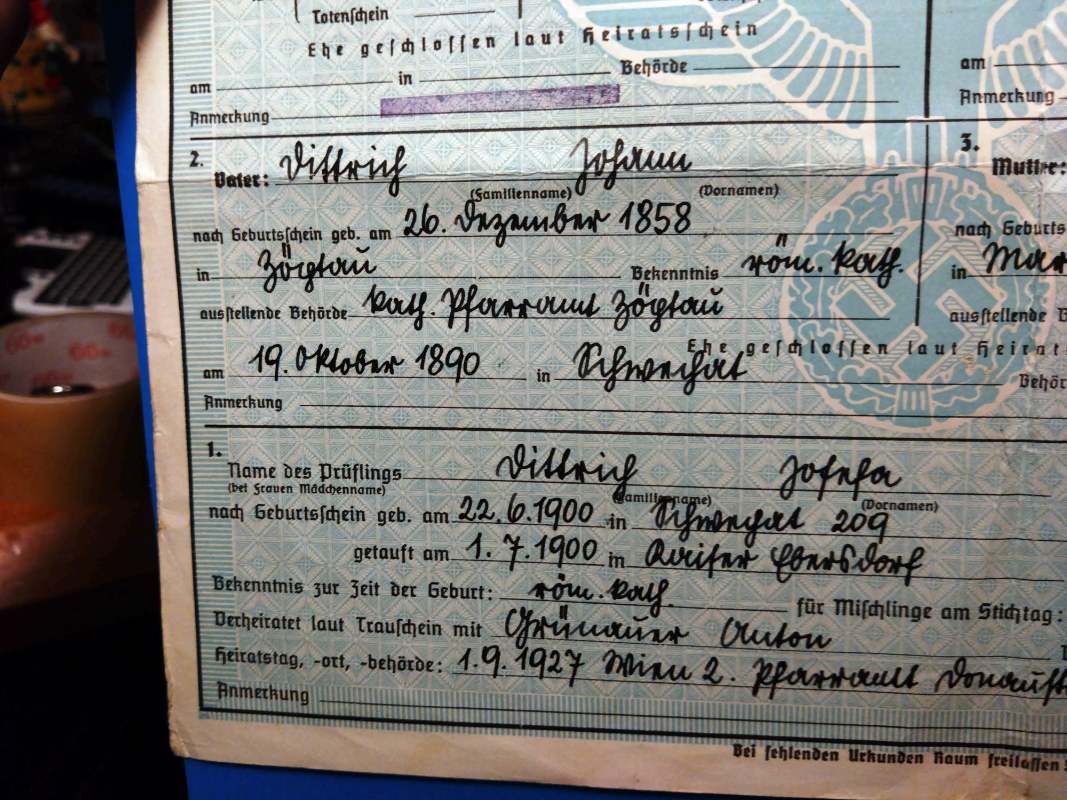 Totenschein
Ehe geschlossen laut Heiratsschein
am in Behörde am
Anmerkung Anmerkung
2. Vater: Dittrich Johann 3. Mutter:
(Familienname) (Vornamen)
nach Geburtsschein geb. am 26. Dezember 1858 nach Geburts
in Zögtau Bekenntnis röm. kath. in Mar
ausstellende Behörde kath. Pfarramt Zögtau ausstellende B
Ehe geschlossen laut Heirat
am 19. Oktober 1890 in Schwechat Behör
Anmerkung
1. Name des Prüflings Dittrich Josefa
(bei Frauen Mädchenname) (Familienname) (Vornamen)
nach Geburtsschein geb. am 22.6.1900 in Schwechat 209
getauft am 1.7.1900 in Kaiser Ebersdorf
Bekenntnis zur Zeit der Geburt: röm. kath. für Mischlinge am Stichtag:
Verheiratet laut Trauschein mit Grünauer Anton
Heiratstag, -ort, -behörde: 1.9.1927 Wien 2. Pfarramt Donaust
Anmerkung
Bei fehlenden Urkunden Raum freilassen
60m 60m